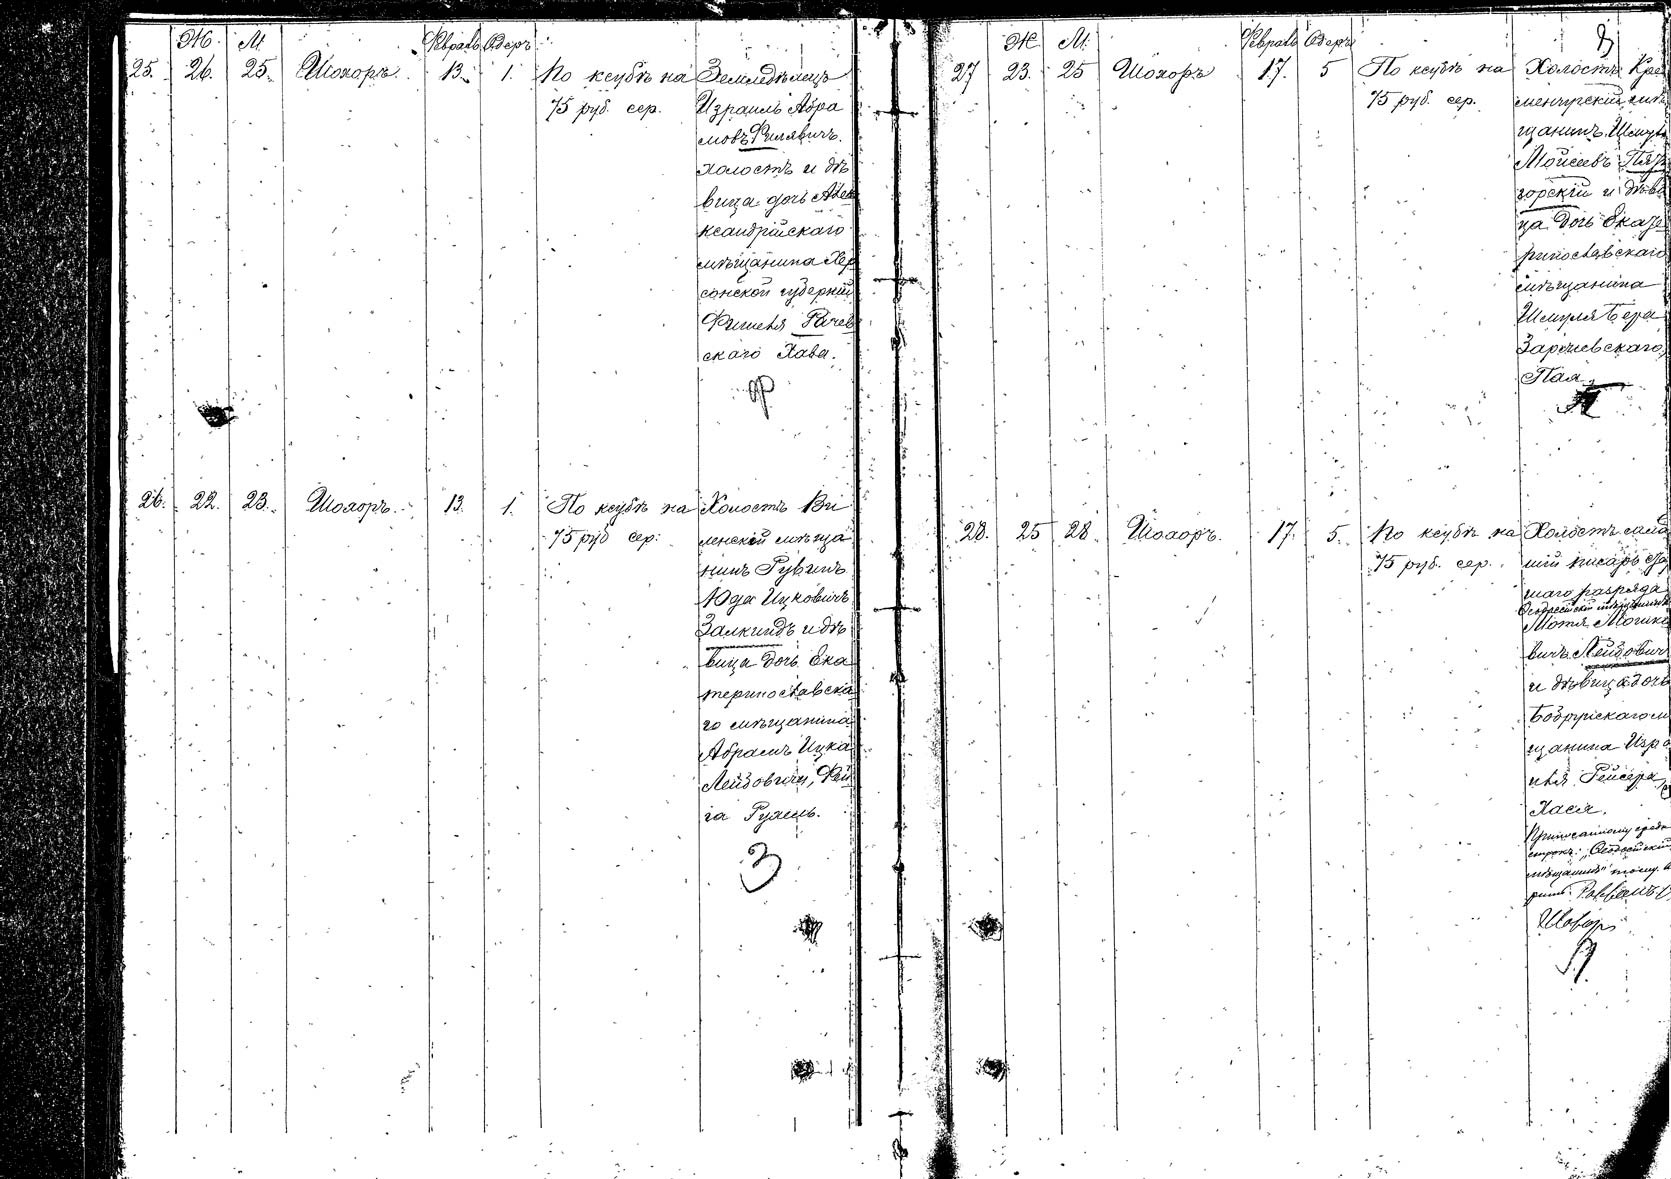 Ж. М. Февраль Адеръ
25. 26. 25. Шохоръ. 13. 1. По ксубѣ на
75 руб. сер.
Земледѣлецъ
Израиль Абра
мовъ
холостъ и дѣ
вица дочь Але
ксандрійскаго
мѣщанина Хер
сонской губерніи
Фишеля Рачев
скаго Хава.
Ф
26. 22. 23. Шохоръ. 13. 1. По ксубѣ на
75 руб сер.
Холостъ Ви
ленскій мѣща
нинъ Рувинъ
Юда Ицковичъ
Залкиндъ и дѣ
вица дочь Ека
теринославска
го мѣщанина
Абрамъ Ицка
Лейбовичи, Фей
га Рухель.
З
Ж М. Февраль Адеръ
27 23. 25 Шохоръ 17. 5 По ксубѣ на
75 руб. сер.
Холостъ Кре
менчугскій мѣ
щанинъ Шмуль
Мойсеевъ
горскій и дѣви
ца дочь Екате
ринославскаго
мѣщанина
Шмуля Бера
Заричевскаго,
Пая.
П
28. 25 28 Шохоръ. 17. 5. По ксубѣ на
75 руб. сер.
Холостъ
писарь
шаго разряда
Ѳеодосійскій мѣщанинъ
Мотя
вичъ Лейбович
и дѣвица дочь
Бобруйскаго м
щанина Изра
иля Рейсера,
Хася.
строкъ: „Ѳеодосійскій
мѣщанинъ"
Раввинъ
Шохоръ
Л